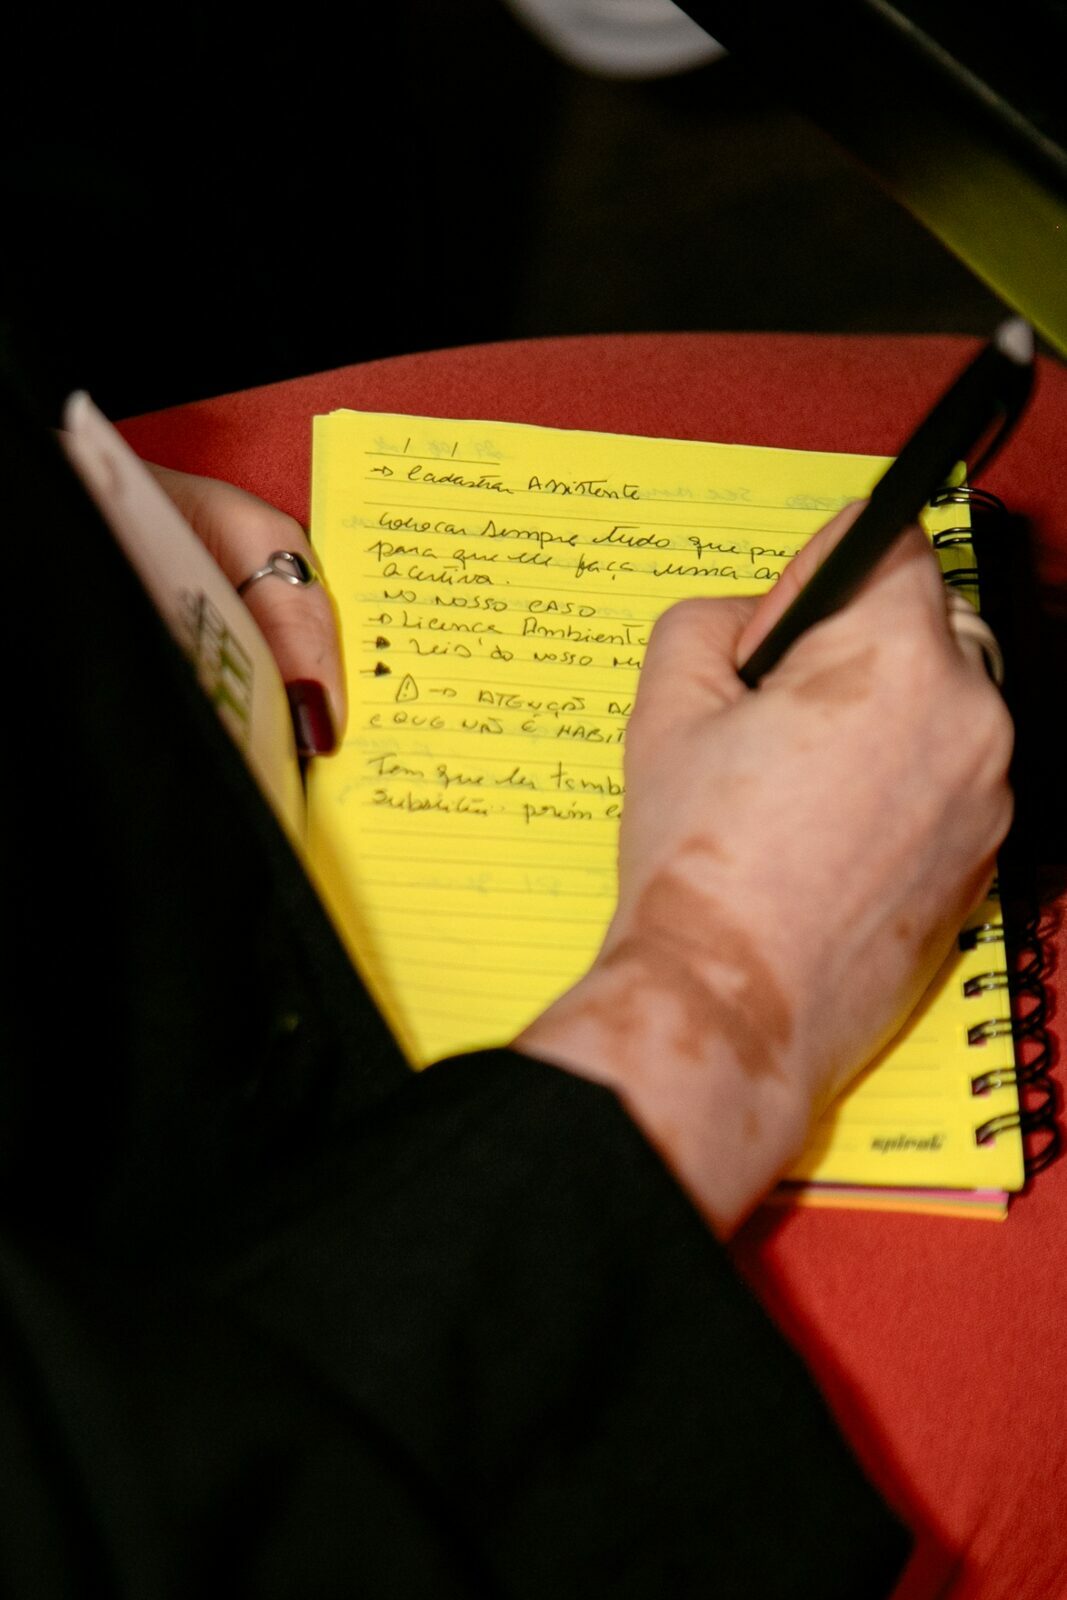 / /
→ Cadastrar Assistente
Colocar sempre tudo que pre
para que ele faça uma as
acertiva.
NO NOSSO CASO
→ Licença Ambienta
Leis do nosso mu
⚠ → ATENÇÃO AL
e QUE NÃO É HABIT
Tem que ler també
porém
spiral